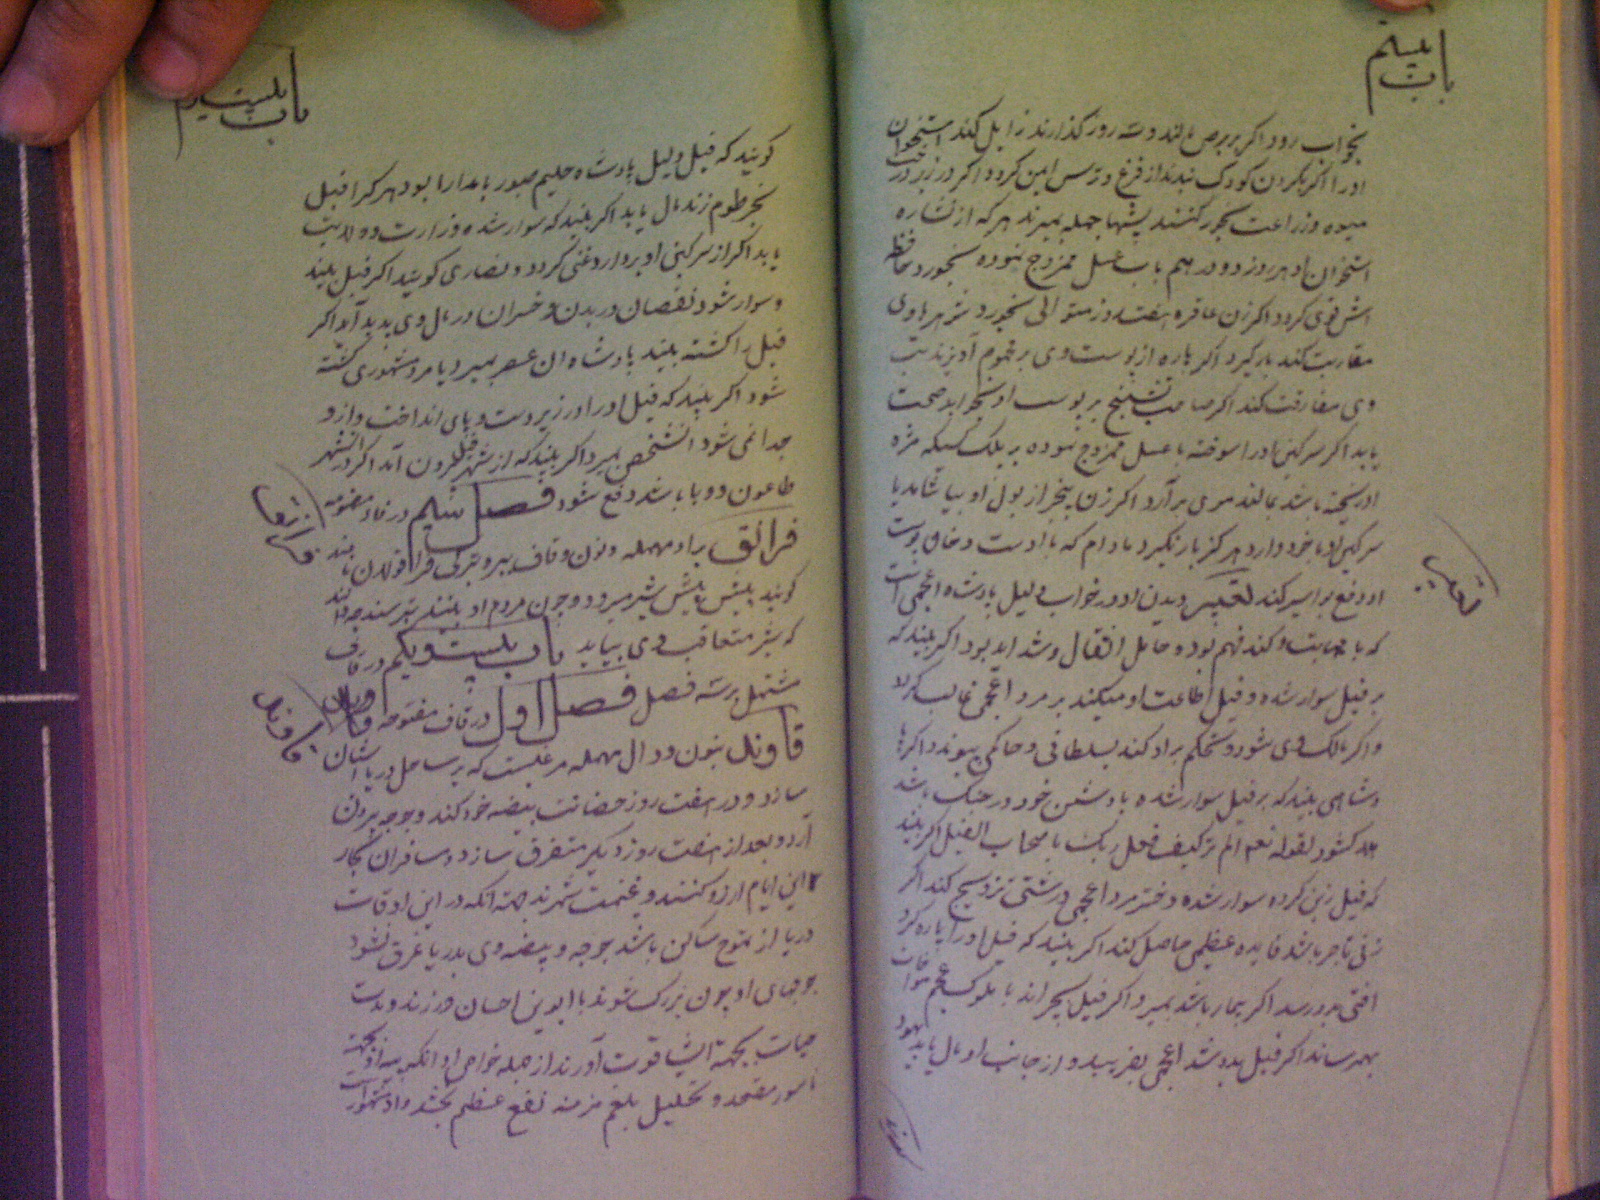 باب بیستم
بخواب رود اکر بر برص مالند و سه روز کذارند زایل کند استخوان
او را اکر بکردن کودک بندند از فزع و ترس ایمن کردد اکر در زیر درخت
میوه و زراعت بخور کنند پشها جمله بمیرند هر که از نشاره
استخوان او هر روز دو درهم با آب عسل ممزوج نموده بخورد حافظه
اش قوی کردد اکر زن عاقره هفت روز متوالی بخورد شوهر با وی
مقاربت کند بار کیرد اکر پاره از پوست وی بر محموم آویزند تب
وی مفارقت کند اکر صاحب تشنج بر پوست او بخوابد صحت
یابد اکر سرکین او را سوخته با عسل ممزوج نموده بر پلک کسیکه مژه
او ریخته باشد بمالند موی بر آرد اکر زن بیخبر از بول او بیاشامد یا
سرکین او با خود دارد هرکز بار نکیرد مادام که با اوست دخان پوست
او دفع بواسیر کند تعبیر دیدن او در خواب دلیل پادشاه اعجمی است
که با مهابت و کند فهم بوده حامل اثقال و شداید بود اکر بیند که
بر فیل سوار شده و فیل اطاعت او میکند بر مرد اعجمی غالب کردد
و اکر مالک وی شود و تحکم براو کند بسلطانی و حاکمی پیوندد اکر پا
دشاهی بیند که بر فیل سوار شده با دشمن خود در جنک باشد
هلاک شود لقوله تعالی الم تر کیف فعل ربک باصحاب الفیل اکر بیند
که فیل زین کرده سوار شده دختر مرد اعجمی درشتی تزویج کند اکر
زنی تاجر باشد فایده عظیمی حاصل کند اکر بیند که فیل او را پاره کرد
افتی بدو رسد اکر بیمار باشد بمیرد اکر فیل بچراند با ملوک عجم مواخات
بهم رساند اکر فیل بدوشد اعجمی بفریبد و از جانب او مال یابد یهود
باب بیستم
کویند که فیل دلیل پادشاه حلیم صبور با مدارا بود هر کرا فیل
بخرطوم زند مال یابد اکر بیند که سوار شده وزارت و ولایت
یابد اکر از سرکین او بردارد غنی کردد و نصاری کویند اکر فیل بیند
و سوار شود نقصان در بدن و خسران در مال وی پدید آید اکر
فیل را کشته بیند پادشاه ان عصر بمیرد یا مرد مشهوری کشته
شود اکر بیند که فیل او را در زیر دست و پای انداخت و از او
جدا نمی شود انشخص بمیرد اکر بیند که از شهر فیل بیرون آمد اکر در انشهر
طاعون و وبا باشد دفع شود فصل سیم در فاء مضمومه
فرانق براء مهمله و نون و قاف ببر و بترکی
کویند پیش پیش شیر میرود و چون مردم او را بینند بترسند چه دانند
که شیر متعاقب وی بیاید باب بیست و یکم در قاف
مشتمل بر سه فصل فصل اول در قاف مفتوحه
قاوند بنون و دال مهمله مرغیست که بر ساحل دریا آشیان
سازد و در هفت روز حضانت بیضه خود کند و جوجه بیرون
آرد و بعد از هفت روز دیکر متفرق سازد و مسافران بحار
این ایام ارزو کنند و غنیمت شمرند بجهة انکه در این اوقات
دریا از تموج ساکن باشد جوجه و بیضه وی بدریا غرق نشود
جوجهای او چون بزرک شوند با ابوین احسان ورزند و مدت
حیات بجهة ایشان قوت آورند از جمله خواص او انکه پیه او بجهة
ناسور مقعد و تحلیل بلغم مزمنه نفع عظیم بخشد و او مشهور است